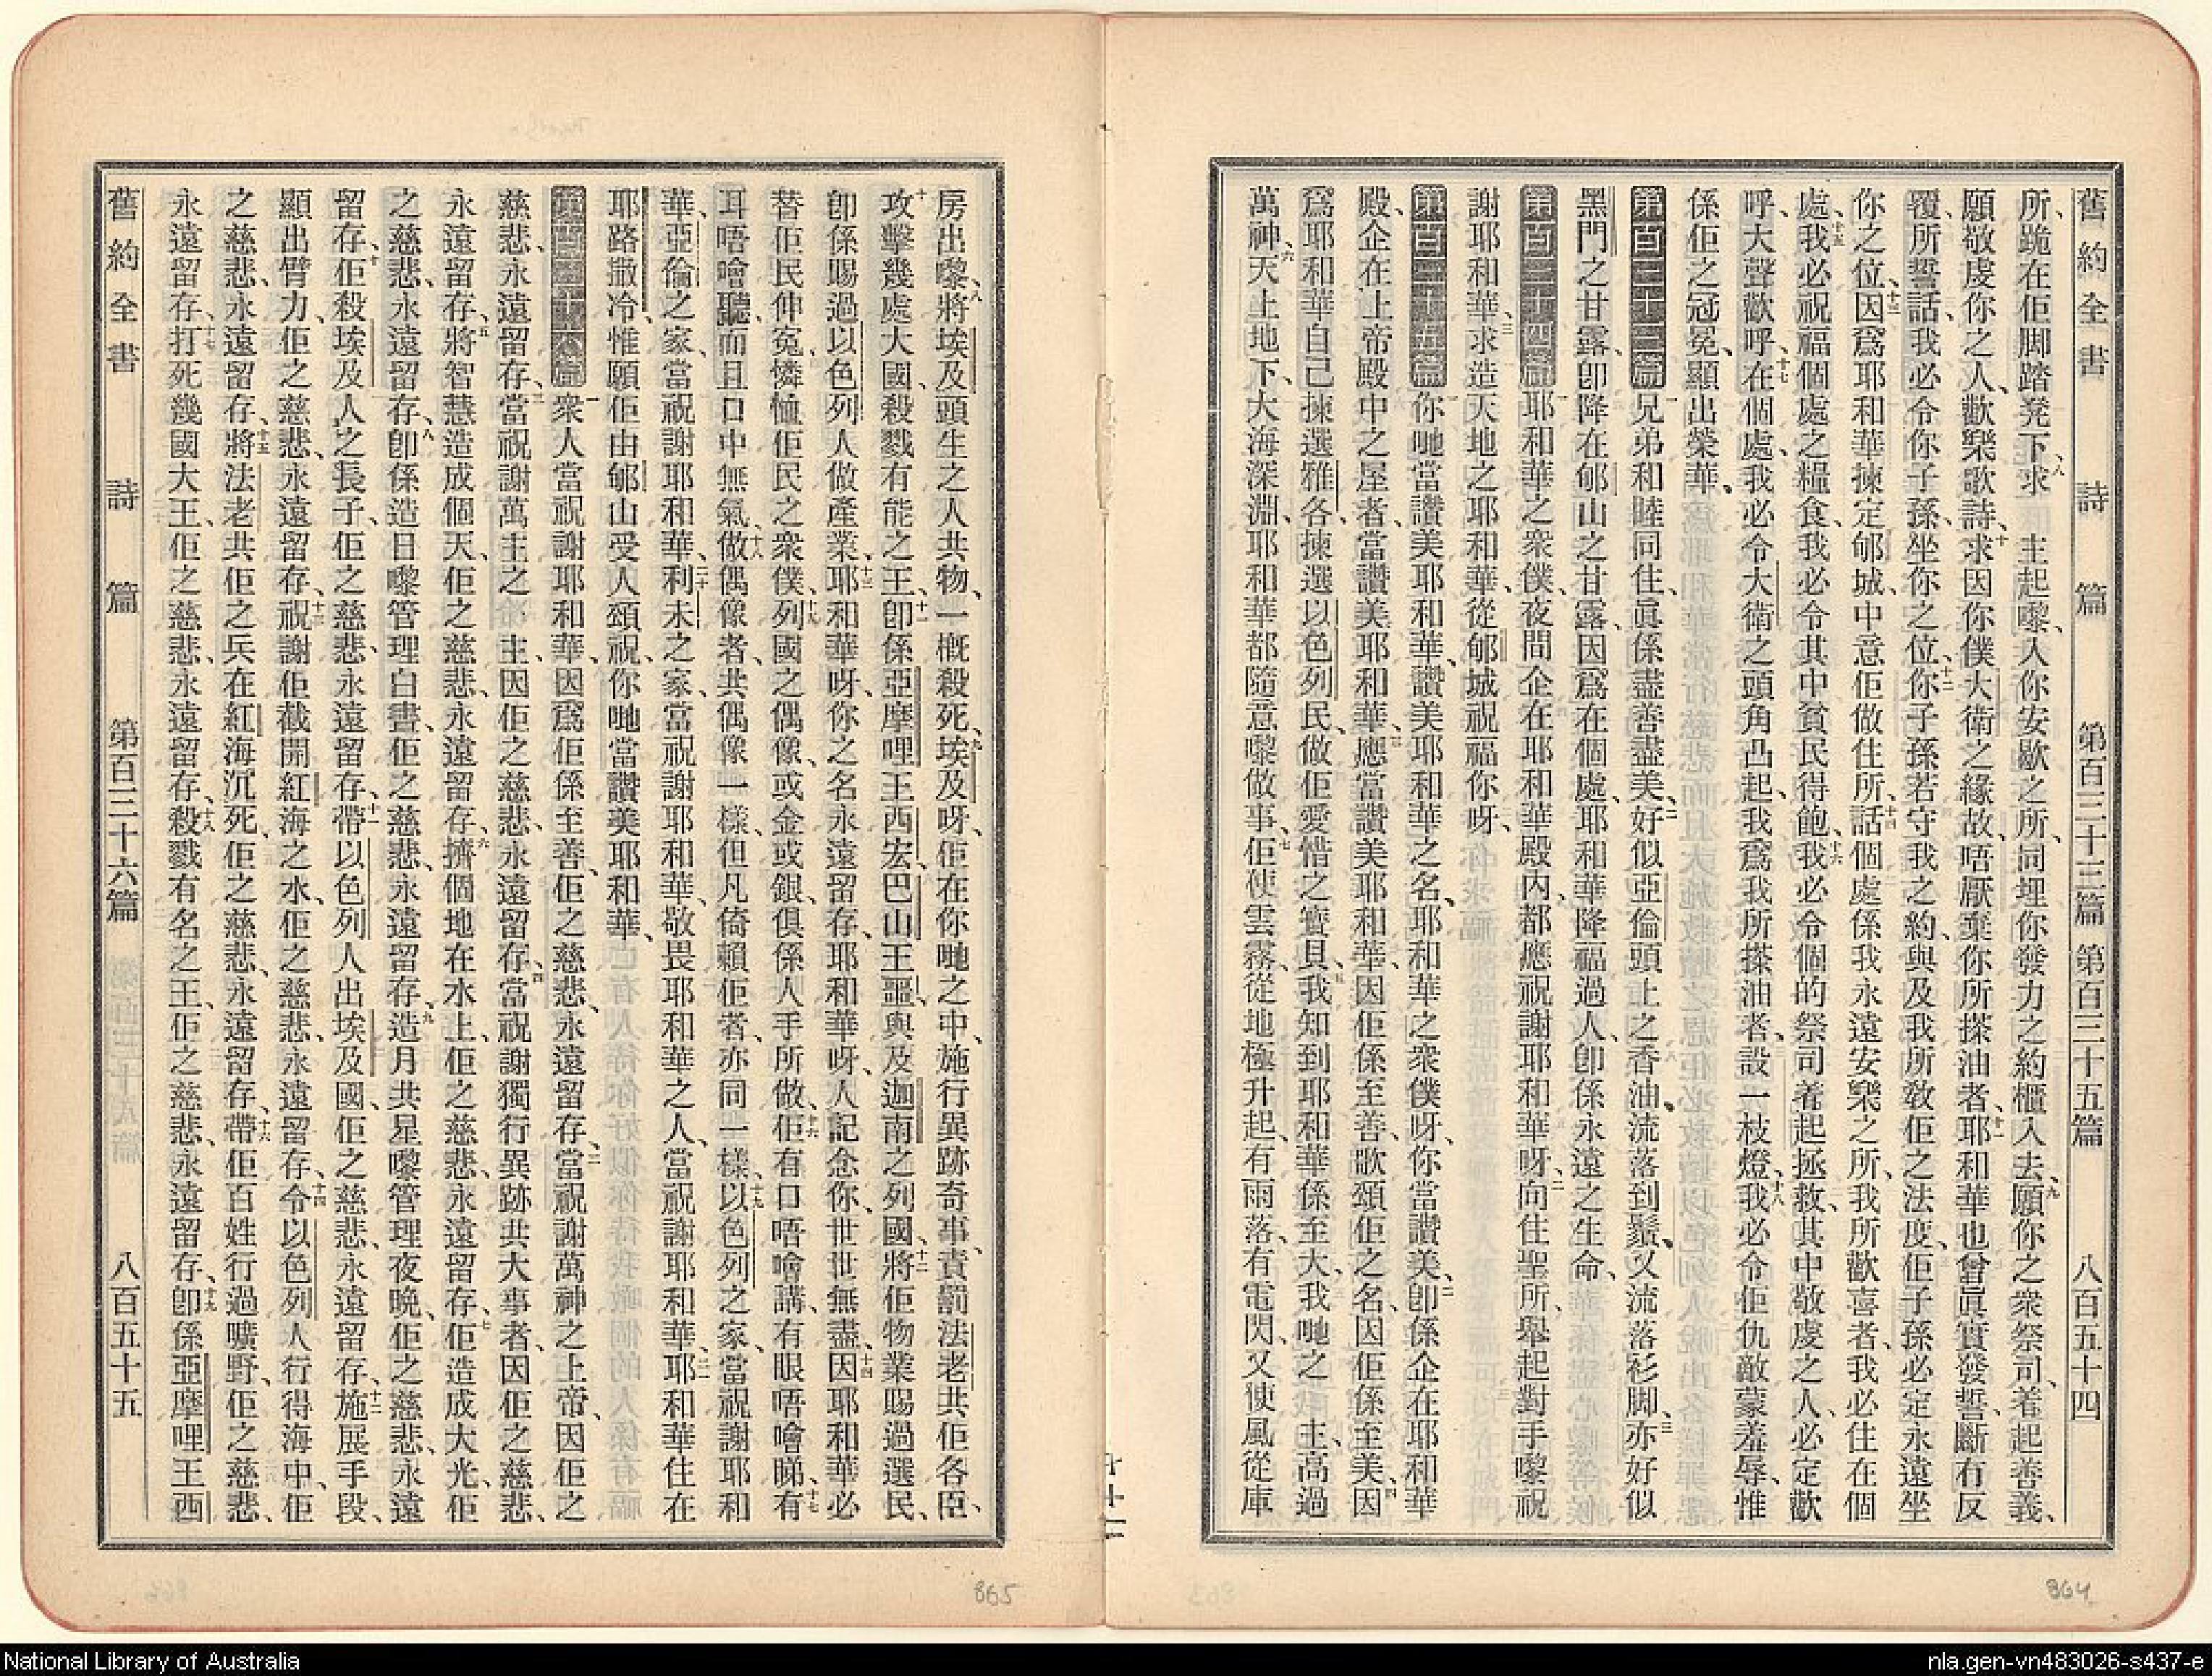 舊約全書 詩篇 第百三十三篇 第百三十五篇 八百五十四
所、跪在佢脚踏凳下、八求 主起嚟、入你安歇之所、同埋你發力之約櫃入去、九願你之衆祭司、着起善義、
願敬虔你之人、歡樂歌詩、十求因你僕大衛之緣故、唔厭棄你所搽油者、十一耶和華也曾眞實發誓、斷冇反
覆、所誓話、我必令你子孫、坐你之位、十二你子孫若守我之約、與及我所敎佢之法度、佢子孫必定永遠坐
你之位、十三因爲耶和華揀定郇城、中意佢做住所、十四話個處係我永遠安樂之所、我所歡喜者、我必住在個
處、十五我必祝福個處之糧食、我必令其中貧民得飽、十六我必令個的祭司着起拯救、其中敬虔之人、必定歡
呼、大聲歡呼、十七在個處、我必令大衛之頭角凸起、我爲我所搽油者、設一枝燈、十八我必令佢仇敵蒙羞辱、惟
係佢之冠冕、顯出榮華、
第百三十三篇 一兄弟和睦同住、眞係盡善盡美、二好似亞倫頭上之香油、流落到鬚、又流落衫脚、三亦好似
黑門之甘露、卽降在郇山之甘露、因爲在個處、耶和華降福過人、卽係永遠之生命、
第百三十四篇 一耶和華之衆僕、夜間企在耶和華殿內、都應祝謝耶和華呀、二向住聖所、舉起對手嚟祝
謝耶和華、三求造天地之耶和華、從郇城祝福你呀、
第百三十五篇 一你哋當讚美耶和華、讚美耶和華之名、耶和華之衆僕呀、你當讚美、二卽係企在耶和華
殿、企在上帝殿中之屋者、三當讚美耶和華、應當讚美耶和華、因佢係至善、歌頌佢之名、因佢係至美、四因
爲耶和華自己揀選雅各、揀選以色列民、做佢愛惜之寶貝、五我知到耶和華係至大、我哋之 主、高過
萬神、六天上地下、大海深淵、耶和華都隨意嚟做事、七佢使雲霧、從地極升起、有雨落、有電閃、又使風從庫
房出嚟、八將埃及頭生之人共物、一槪殺死、九埃及呀、佢在你哋之中、施行異跡奇事、責罰法老共佢各臣、
十攻擊幾處大國、殺戮有能之王、十一卽係亞摩哩王西宏、巴山王噩、與及迦南之列國、十二將佢物業賜過選民、
卽係賜過以色列人做產業、十三耶和華呀、你之名永遠留存、耶和華呀、人記念你、世世無盡、十四因耶和華必
替佢民伸冤、憐恤佢民之衆僕、十五列國之偶像、或金或銀、俱係人手所做、十六佢有口唔噲講、有眼唔噲睇、十七有
耳唔噲聽、而且口中無氣、十八做偶像者、共偶像一樣、但凡倚賴佢者、亦同一樣、十九以色列之家、當祝謝耶和
華、亞倫之家、當祝謝耶和華、二十利未之家、當祝謝耶和華、敬畏耶和華之人、當祝謝耶和華、二一耶和華住在
耶路撒冷、惟願佢由郇山受人頌祝、你哋當讚美耶和華、
第百三十六篇 一衆人當祝謝耶和華、因爲佢係至善、佢之慈悲、永遠留存、二當祝謝萬神之上帝、因佢之
慈悲、永遠留存、三當祝謝萬主之 主、因佢之慈悲、永遠留存、四當祝謝獨行異跡共大事者、因佢之慈悲、
永遠留存、五將智慧造成個天、佢之慈悲、永遠留存、六擠個地在水上、佢之慈悲、永遠留存、七佢造成大光、佢
之慈悲、永遠留存、八卽係造日嚟管理白晝、佢之慈悲、永遠留存、九造月共星嚟管理夜晚、佢之慈悲、永遠
留存、十佢殺埃及人之長子、佢之慈悲、永遠留存、十一帶以色列人出埃及國、佢之慈悲、永遠留存、十二施展手段、
顯出臂力、佢之慈悲、永遠留存、十三祝謝佢截開紅海之水、佢之慈悲、永遠留存、十四令以色列人行得海中、佢
之慈悲、永遠留存、十五將法老共佢之兵在紅海沉死、佢之慈悲、永遠留存、十六帶佢百姓行過曠野、佢之慈悲、
永遠留存、十七打死幾國大王、佢之慈悲、永遠留存、十八殺戮有名之王、佢之慈悲、永遠留存、十九卽係亞摩哩王西
舊約全書 詩篇 第百三十六篇 八百五十五
864
865
National Library of Australia
nla.gen-vn483026-s437-e